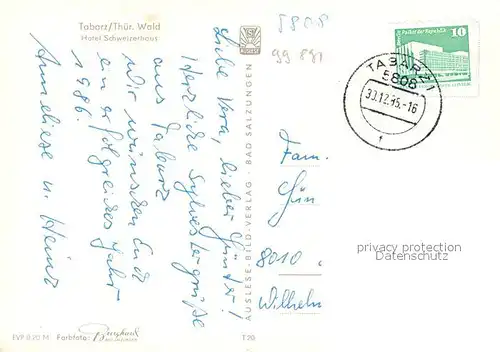 Tabarz/Thür. Wald
Hotel Schweizerhaus
Liebe Vera, lieber Günter!
Herzliche Sylvestergrüße
aus Tabarz
Wir wünschen Euch
ein erfolgreiches Jahr
1986.
Anneliese u. Heinz
EVP 0.20 M Farbfoto:
T 20
AUSLESE-BILD-VERLAG · BAD SALZUNGEN
5808
99 891
Palast der Republik
10
TABARZ 1
5808
30.12.85.-16
f
Fam.
Gün
8010
Wilhelm
privacy protection
Datenschutz